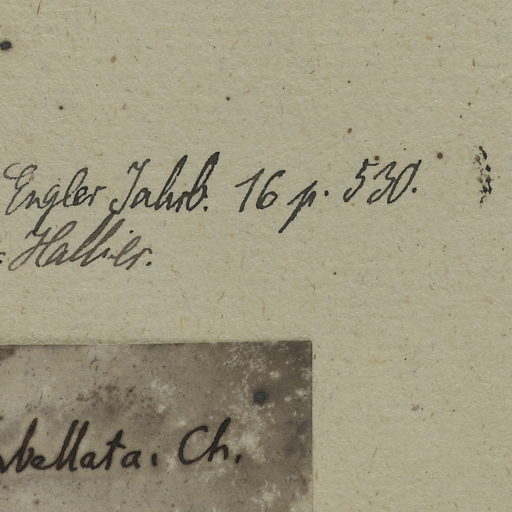 Engler Jahrb. 16 p. 530.
Hallier.
bellata. Ch.